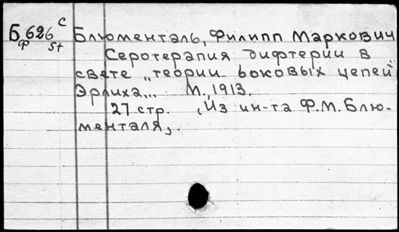 Б ф 626 c st Блюменталь, Филипп Маркович
Серотерапия дифтерии в
свете „теории боковых цепей"
Эрлиха... М., 1913.
27 стр. (Из ин-та Ф.М. Блю-
менталя).